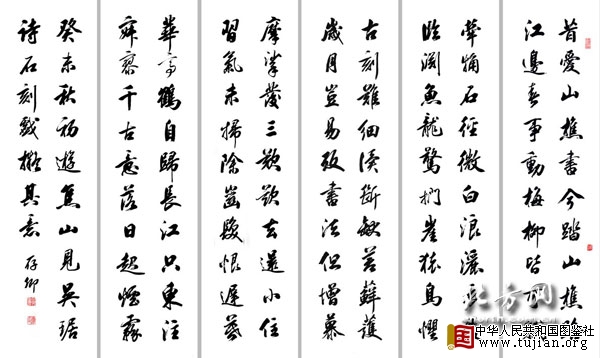 昔愛山樵書今踏山樵路
江邊春事動梅柳皆
犖确石徑微白浪灑
臨淵魚龍驚捫崖猿鳥懼
古刻難細讀斷缺蒼蘚護
歲月豈易攷書法但增慕
摩挲發三歎欲去還小住
習氣未掃除齒髮恨遲暮
華亭鶴自歸長江只東注
寂寥千古意落日起煙霧
癸未秋初遊焦山見吳琚
詩石刻戲擬其意 存卿
北方网
中华人民共和国图鉴社
www.tujian.org